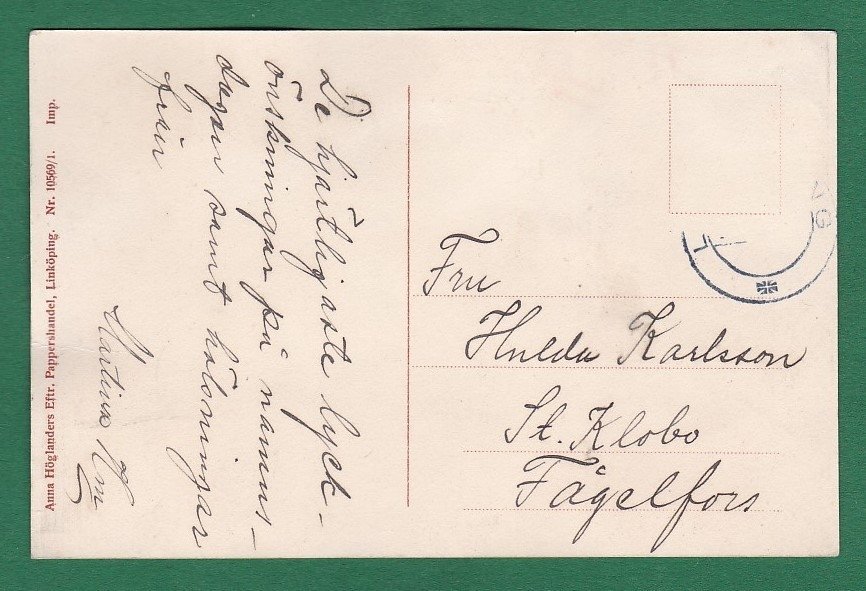 De hjärtligaste lyck-
önskningar på namns-
dagen samt hälsningar
från
Martina Hm
Fru
Hulda Karlsson
St. Klobo
Fågelfors
Anna Höglanders Eftr. Pappershandel, Linköping. Nr. 10569/1. Imp.